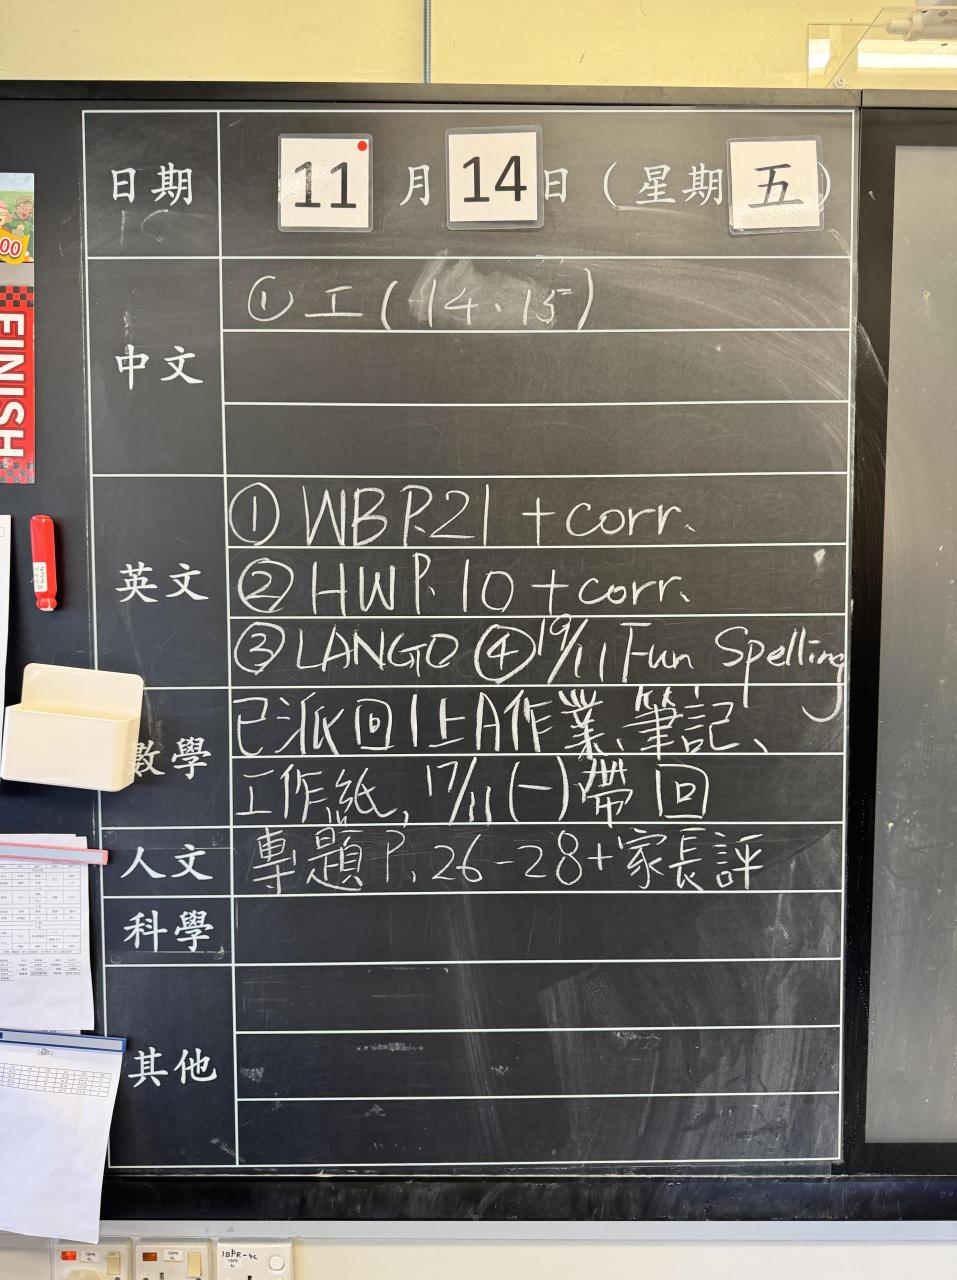 日期 11 月 14 日 (星期 五)
中文
① 工 (14、15)
英文
① WB P.21 + corr.
② HW P. 10 + corr.
③ LANGO ④ 19/11 Fun Spelling
數學
已派回1上A作業、筆記、
工作紙, 17/11 (一) 帶回
人文
專題 P. 26-28 + 家長評
科學
其他
FINISH
00
1BPR-4C